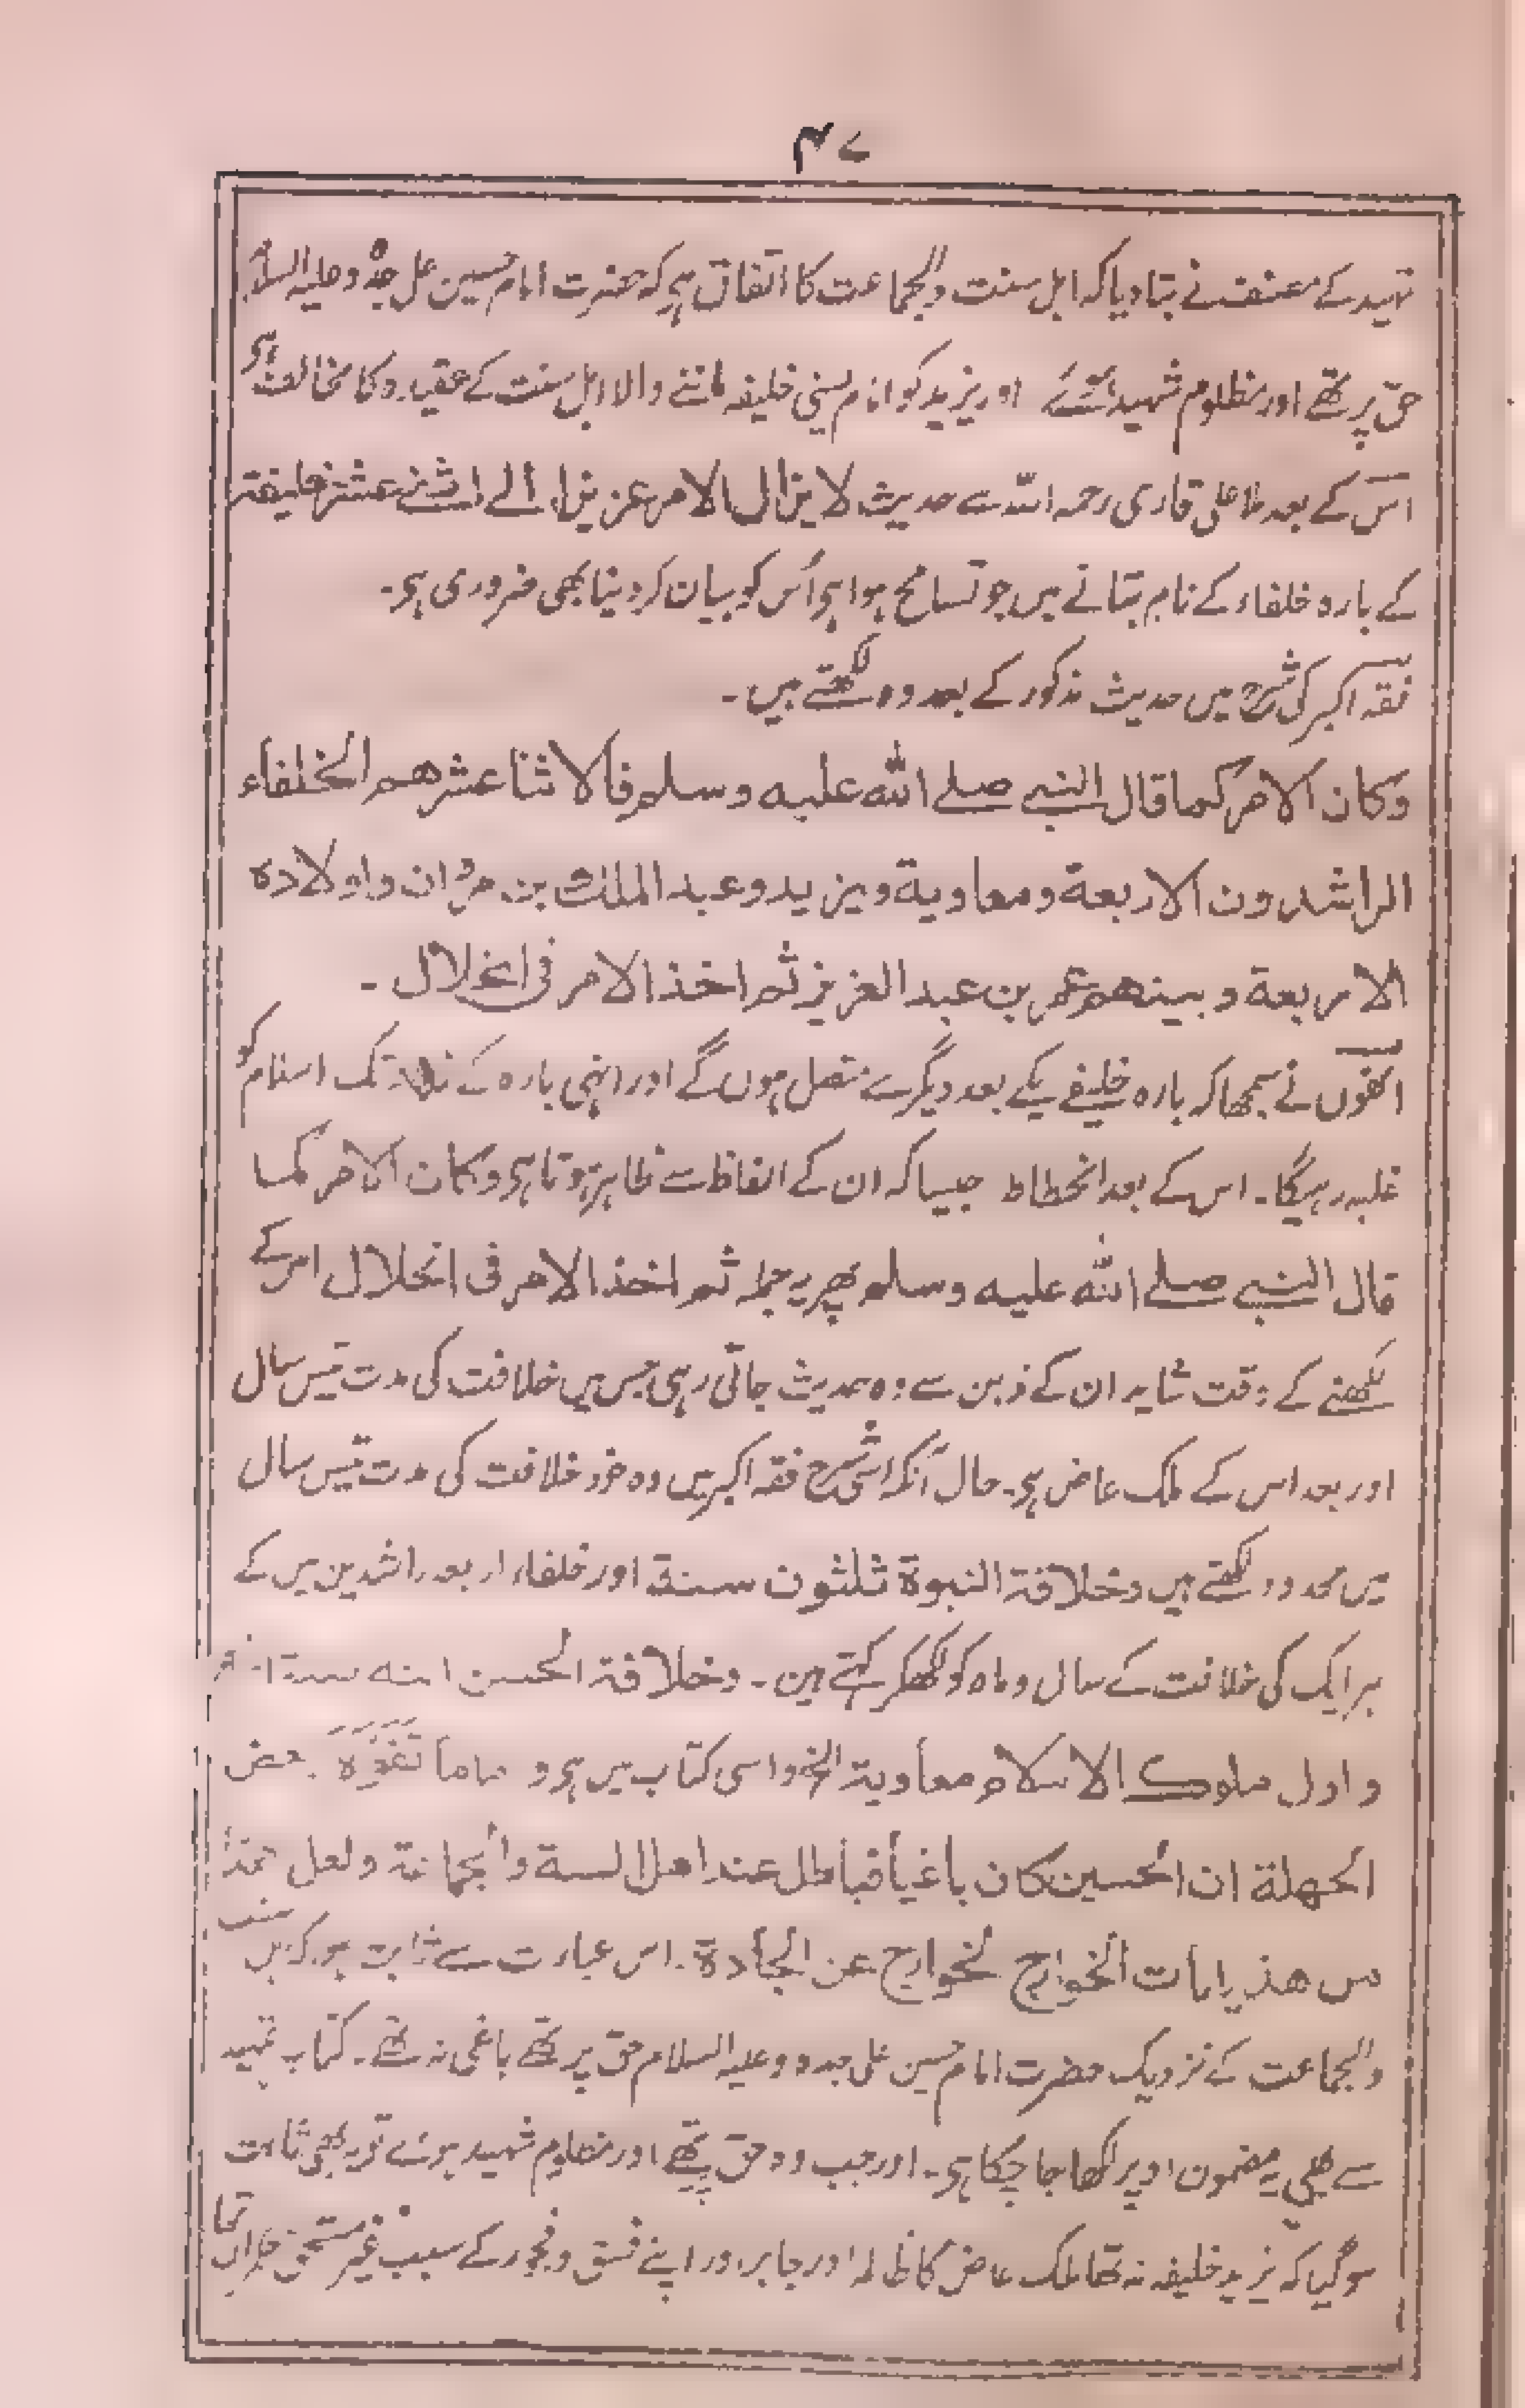 ۴۷
تمہید کے مصنف نے بتا دیا کہ اہل سنت والجماعت کا اتفاق ہی کہ حضرت امام حسین علی جدہ وعلیہ السلام
حق پر تھے اور مظلوم شہید ہوئے اور یزید کو امام یعنی خلیفہ ماننے والا اہل سنت کے عقیدہ کا مخالف ہی
اس کے بعد ملا علی قاری رحمہ اللہ سے حدیث لا یزال الامر عزیزا الے اثنے عشر خلیفة
کے بارہ خلفاء کے نام بتانے میں جو تسامح ہوا ہی اُس کو بیان کر دینا بھی ضروری ہی۔
فقہ اکبر کی شرح میں حدیث مذکور کے بعد وہ لکھتے ہیں۔
وکان الامر کما قال النبی صلے اللہ علیہ وسلم فالاثنا عشر ھم الخلفاء
الراشدون الاربعة ومعاویة ویزید وعبد الملک بن مروان واولادہ
الاربعة وبینھم عمر بن عبد العزیز ثم اخذ الامر فی انحلال۔
انھوں نے سمجھا کہ بارہ خلیفے یکے بعد دیگرے متصل ہوں گے اور انہی بارہ کے زمانہ تک اسلام کو
غلبہ رہیگا۔ اس کے بعد انحطاط جیسا کہ ان کے الفاظ سے ظاہر ہوتا ہی وکان الامر کما
قال النبی صلے اللہ علیہ وسلم پھر یہ جملہ ثم اخذ الامر فی انحلال اس کے
لکھنے کے وقت شاید ان کے ذہن سے وہ حدیث جاتی رہی جس میں خلافت کی مدت تیس سال
اور بعد اس کے ملک عاض ہی۔ حال آنکہ اسی شرح فقہ اکبر میں وہ خود خلافت کی مدت تیس سال
میں محدود لکھتے ہیں وخلافة النبوة ثلثون سنة اور خلفاء اربعہ راشدین میں کے
ہر ایک کی خلافت کے سال و ماہ کو لکھکر کہتے ہین۔ وخلافة الحسن ابنہ ستة اشھر
و اول ملوک الاسلام معاویة الخ و اسی کتاب میں ہی و اما ما تفوہ بعض
الجھلة ان الحسین کان باغیا فباطل عند اھل السنة والجماعة ولعل ھذا
من ھذیانات الخوارج لخوارج عن الجادة۔ اس عبارت سے ثابت ہو کہ اہل سنت
والجماعت کے نزدیک حضرت امام حسین علی جدہ و علیہ السلام حق پر تھے باغی نہ تھے۔ کتاب تمہید
سے بھی یہ مضمون اوپر لکھا جا چکا ہی۔ اور جب وہ حق پر تھے اور مظلوم شہید ہوئے تو یہ بھی ثابت
ہو گیا کہ یزید خلیفہ نہ تھا ملک عاض کا ظالم اور جابر اور اپنے فسق و فجور کے سبب غیر مستحق